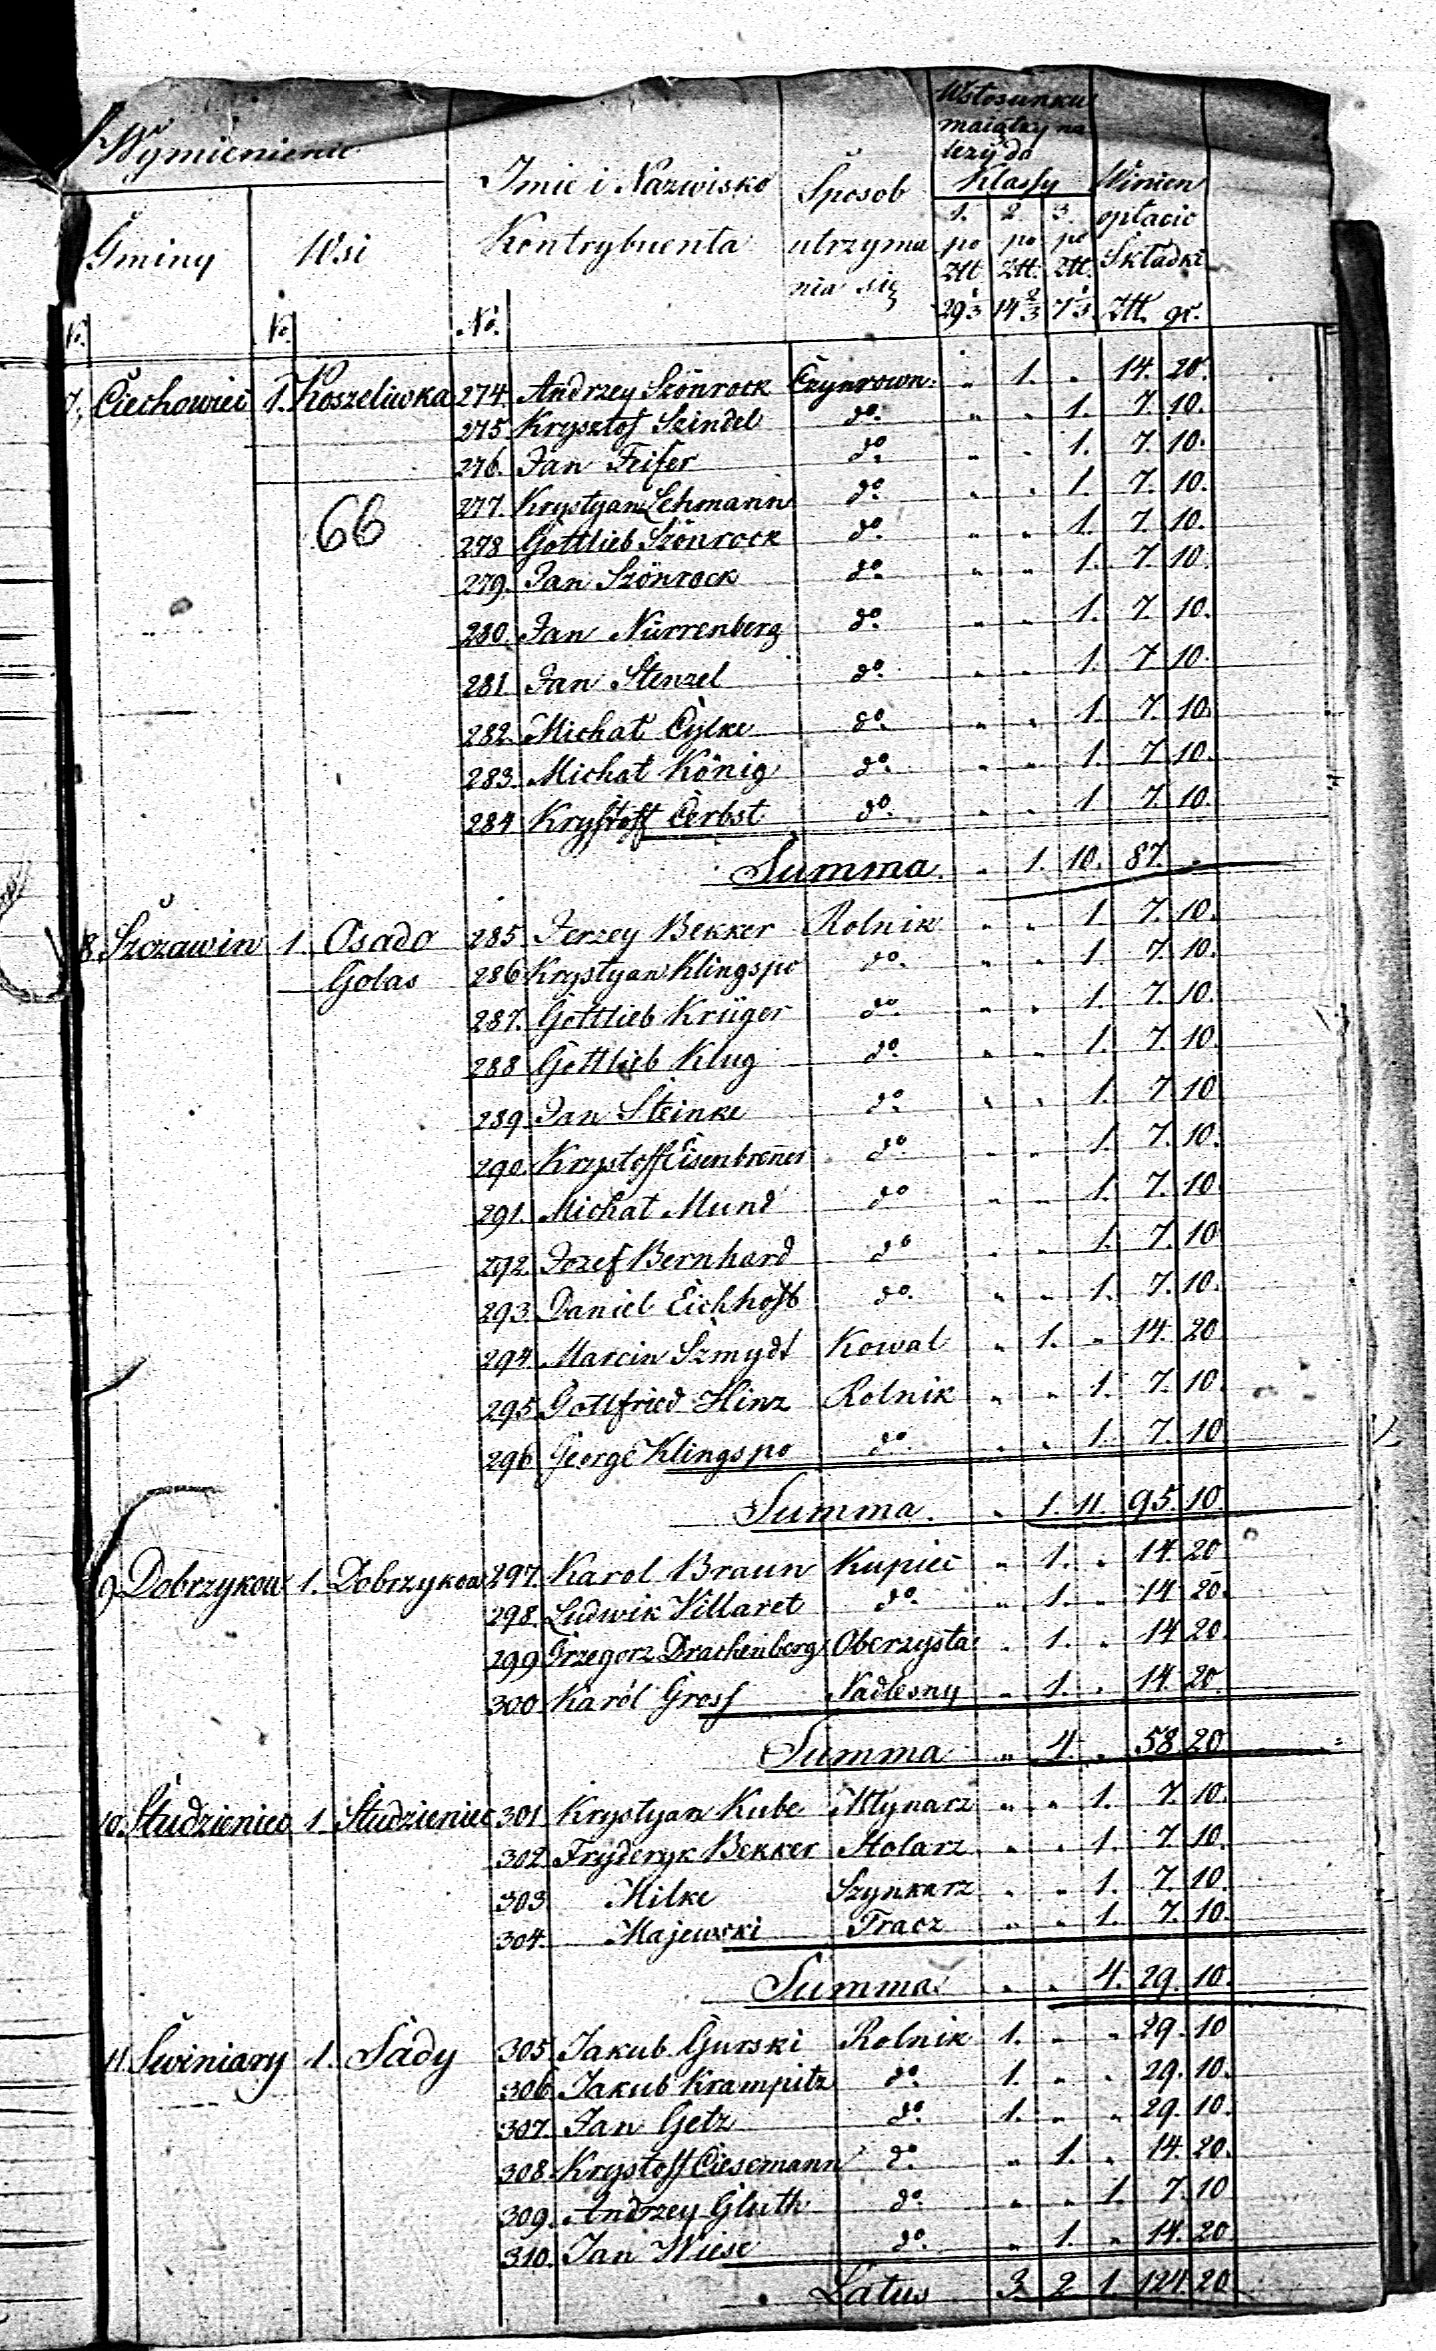 Wymienienie
Gminy
Wsi
Imie i Nazwisko
Kontrybuenta
Sposob
utrzyma
nia się
Wstosunku
maiątky na
leży do
Klassy
1. 2. 3.
po po po
Ztt Ztt. Ztt.
29 1/3 14 2/3 7 1/3
Winien
opłacić
Składki
Ztt. gr.
No. No. No.
7. Ciechowiec 1. Koszeliwka 274 Andrzey Szönrock Czynszown. " 1. " 14. 20.
275 Krysztof Szindel do. " " 1. 7. 10.
276. Jan Feifer do. " " 1. 7. 10.
277. Krystyan Lehmann do. " " 1. 7. 10.
66
278 Gottlieb Szönrock do. " " 1. 7. 10.
279. Jan Szönrock do. " " 1. 7. 10.
280. Jan Nürrenberg do. " " 1. 7. 10.
281. Jan Stenzel do. " " 1. 7. 10.
282. Michał Cylke do. " " 1. 7. 10.
283. Michał König do. " " 1. 7. 10.
284 Krystoff Cerbst do. " " 1 7. 10.
Summa. " 1. 10. 87. "
8. Szczawin 1. Osado 285. Jerzey Bekker Rolnik " " 1. 7. 10.
Golas 286 Krystyan Klingspo do. " " 1 7. 10.
287. Gottlieb Krüger do. " " 1. 7. 10.
288 Gottlieb Klug do. " " 1. 7. 10.
289. Jan Steinke do. " " 1. 7 10
290. Krystoff Eisenbrener do. " " 1. 7. 10.
291. Michał Mund do " " 1. 7. 10.
292. Jozef Bernhard do " " 1. 7. 10
293. Daniel Eichhoft do. " " 1. 7. 10.
294. Marcin Szmydt Kowal " 1. " 14. 20
295. Gottfried Hinz Rolnik " " 1. 7. 10.
296 George Klingspo do. " " 1. 7. 10
Summa. " 1. 11. 95. 10.
9 Dobrzykow 1. Dobrzykow 297. Karol Braun Kupiec " 1. " 14. 20
298. Ludwik Villaret do. " 1. " 14 20.
299 Grzegorz Drachenberg Oberzysta " 1. " 14 20.
300 Karól Gross Nadlesny " 1. " 14. 20.
Summa " 4. " 58. 20
10. Studzieniec 1. Studzieniec 301. Krystyan Kube Młynarz " " 1. 7. 10.
302. Fryderyk Bekker Stolarz " " 1. 7 10.
303. Milke Szynkarz " " 1. 7. 10.
304. Majewski Tracz " " 1. 7. 10.
Summa. " " 4. 29. 10.
11. Swiniary 1. Sady 305. Jakub Gurski Rolnik 1. " " 29. 10
306. Jakub Krampitz do. 1. " " 29. 10.
307. Jan Getz do. 1. " " 29. 10.
308. Krystoff Ciesemann do " 1. " 14. 20.
309. Andrzey Gluth do. " " 1. 7. 10
310. Jan Wiese do. " 1. " 14. 20
Latus 3. 2 1. 124. 20